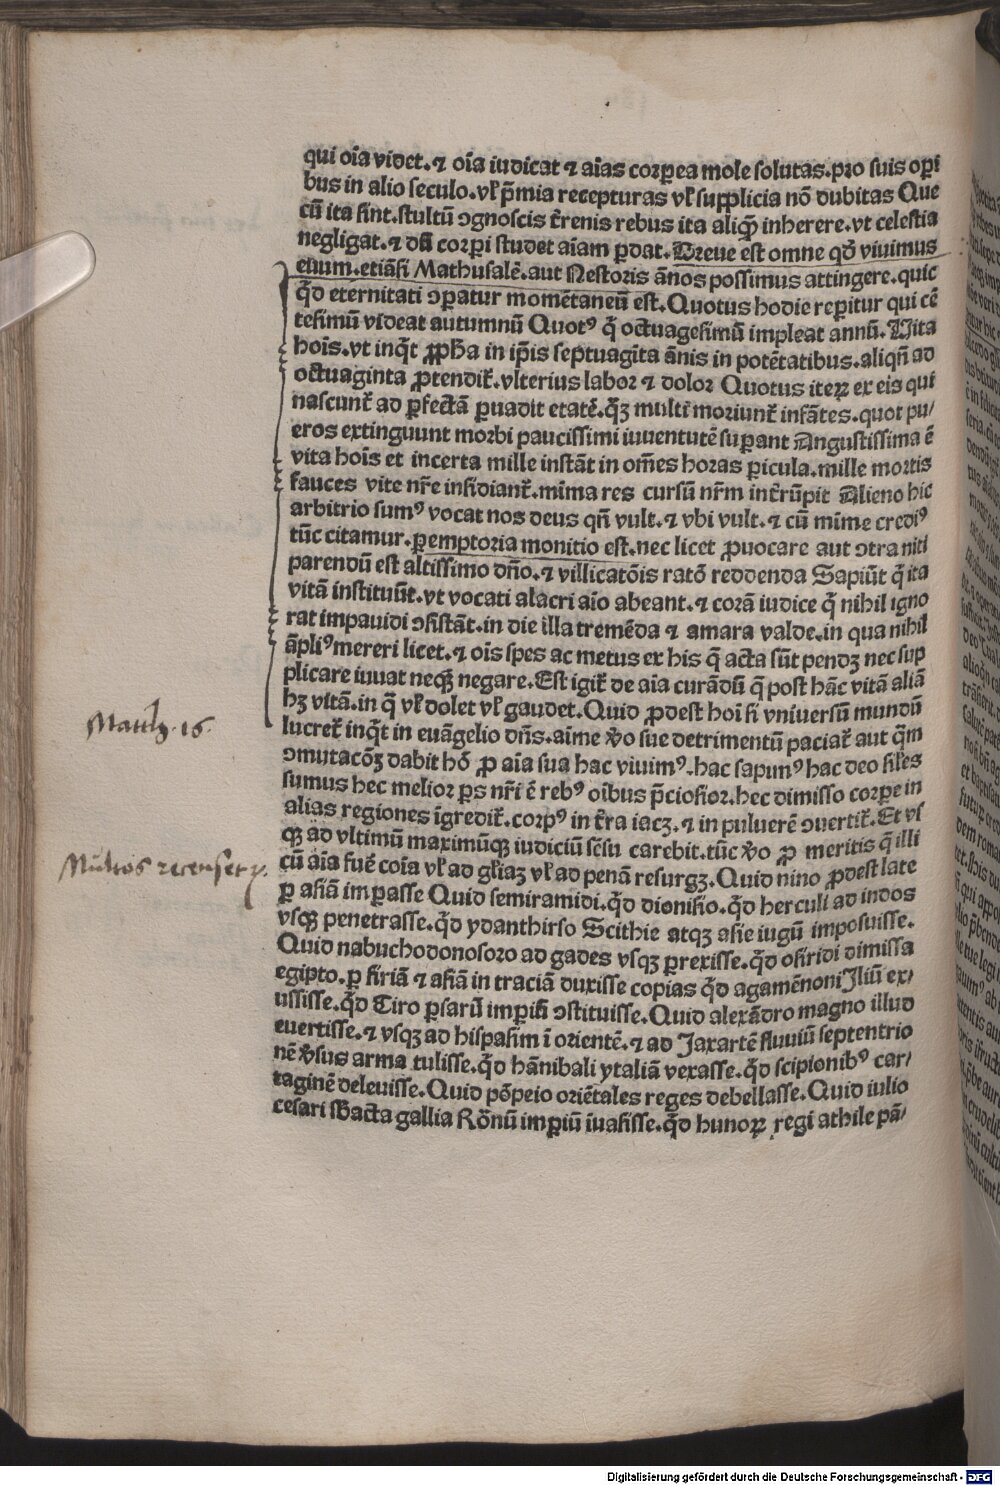 qui oīa videt.⁊ oīa iudicat ⁊ aīas corꝑea mole solutas.pro suis oꝑi
bus in alio seculo.vꝉ p̄mia recepturas vꝉ supplicia nō dubitas Que
cū ita sint.stultū ꝯgnoscis t̄renis rebus ita aliqꝫ inherere.vt celestia
negligat.⁊ dū corꝑi studet aīam ꝑdat. Breue est omne qd̄ viuimus
euum.etiāsi Mathusalē.aut Nestoris ān̄os possimus attingere.quic
qͥd eternitati ꝯꝑatur momētaneū est.Quotus hodie reꝑitur qui cē
tesimū videat autumnū Quotꝰ q̄ octuagesimū impleat annū. Vita
hoīs.vt inqͥt ꝓpha in ip̄is septuagīta ānis in potētatibus.aliqn̄ ad
octuaginta ꝓtendit̄.vlterius labor ⁊ dolor Quotus iteꝝ ex eis qui
nascunt̄ ad ꝑfectā ꝑuadit etatē.qͣꝫ multi moriunt̄ infātes.quot pu/
eros extinguunt morbi paucissimi iuuentutē suꝑant Angustissima ē
vita hoīs et incerta mille instāt in om̄es horas ꝑicula.mille mortis
fauces vite nr̄e insidiant̄.mīma res cursū nr̄m int̄rūpit Alieno hic
arbitrio sumꝰ vocat nos deus qn̄ vult.⁊ vbi vult.⁊ cū mīme crediꝰ
tūc citamur.ꝑemptoria monitio est.nec licet ꝓuocare aut ꝯtra niti
parendū est altissimo dn̄o.⁊ villicatōis ratō reddenda Sapiūt q̄ ita
vitā instituūt.vt vocati alacri aīo abeant.⁊ corā iudice q̄ nihil igno
rat impauidi ꝯsistāt.in die illa tremēda ⁊ amara valde.in qua nihil
āpliꝰ mereri licet.⁊ oīs spes ac metus ex his q̄ acta sūt pendꝫ nec sup
plicare iuuat neqꝫ negare.Est igit̄ de aīa curādū q̄ post hāc vitā aliā
hꝫ vitā.in q̄ vꝉ dolet vꝉ gaudet.Quid ꝓdest hoī si vniuersū mundū
lucret̄ inqͥt in euāgelio dn̄s.aīme v̄o sue detrimentū paciat̄ aut qͣm
ꝯmutacōꝫ dabit hō ꝓ aīa sua hac viuimꝰ.hac sapimꝰ hac deo siꝉes
sumus hec melior ꝑs nr̄i ē rebꝰ oībus p̄ciosior.hec dimisso corꝑe in
alias regiones īgredit̄.corpꝰ in t̄ra iacꝫ.⁊ in puluerē ꝯuertit̄.Et vſ
qꝫ ad vltimū maximūqꝫ iudiciū sēsu carebit.tūc v̄o ꝓ meritis q̄ illi
cū aīa fuēr̄ coīa vꝉ ad gꝉiaꝫ vꝉ ad penā resurgꝫ.Quid nino ꝓdest late
ꝑ asiā imꝑasse Quid semiramidi.qͥd dionisio.qͥd herculi ad indos
vsqꝫ penetrasse.qͥd ydanthirso Scithie atqꝫ asie iugū imposuisse.
Quid nabuchodonosoro ad gades vsqꝫ ꝑrexisse.qͥd osiridi dimissa
egipto.ꝑ siriā ⁊ asiā in traciā duxisse copias qͥd agamēnoni Iliū ex/
ussisse.qͥd Tiro ꝑsarū imꝑiū ꝯstituisse.Quid alexādro magno illud
euertisse.⁊ vsqꝫ ad hispasim ī orientē.⁊ ad Iaxartē fluuiū septentrio
nē v̄sus arma tulisse.qͥd hānibali ytaliā vexasse.qͥd scipionibꝰ car/
taginē deleuisse.Quid pōpeio oriētales reges debellasse.Quid iulio
cesari sb̄acta gallia Rōnū imꝑiū īuasisse.qͥd hunoꝝ regi athile pā/
Matth. 16.
Multos recenset
Digitalisierung gefördert durch die Deutsche Forschungsgemeinschaft - DFG